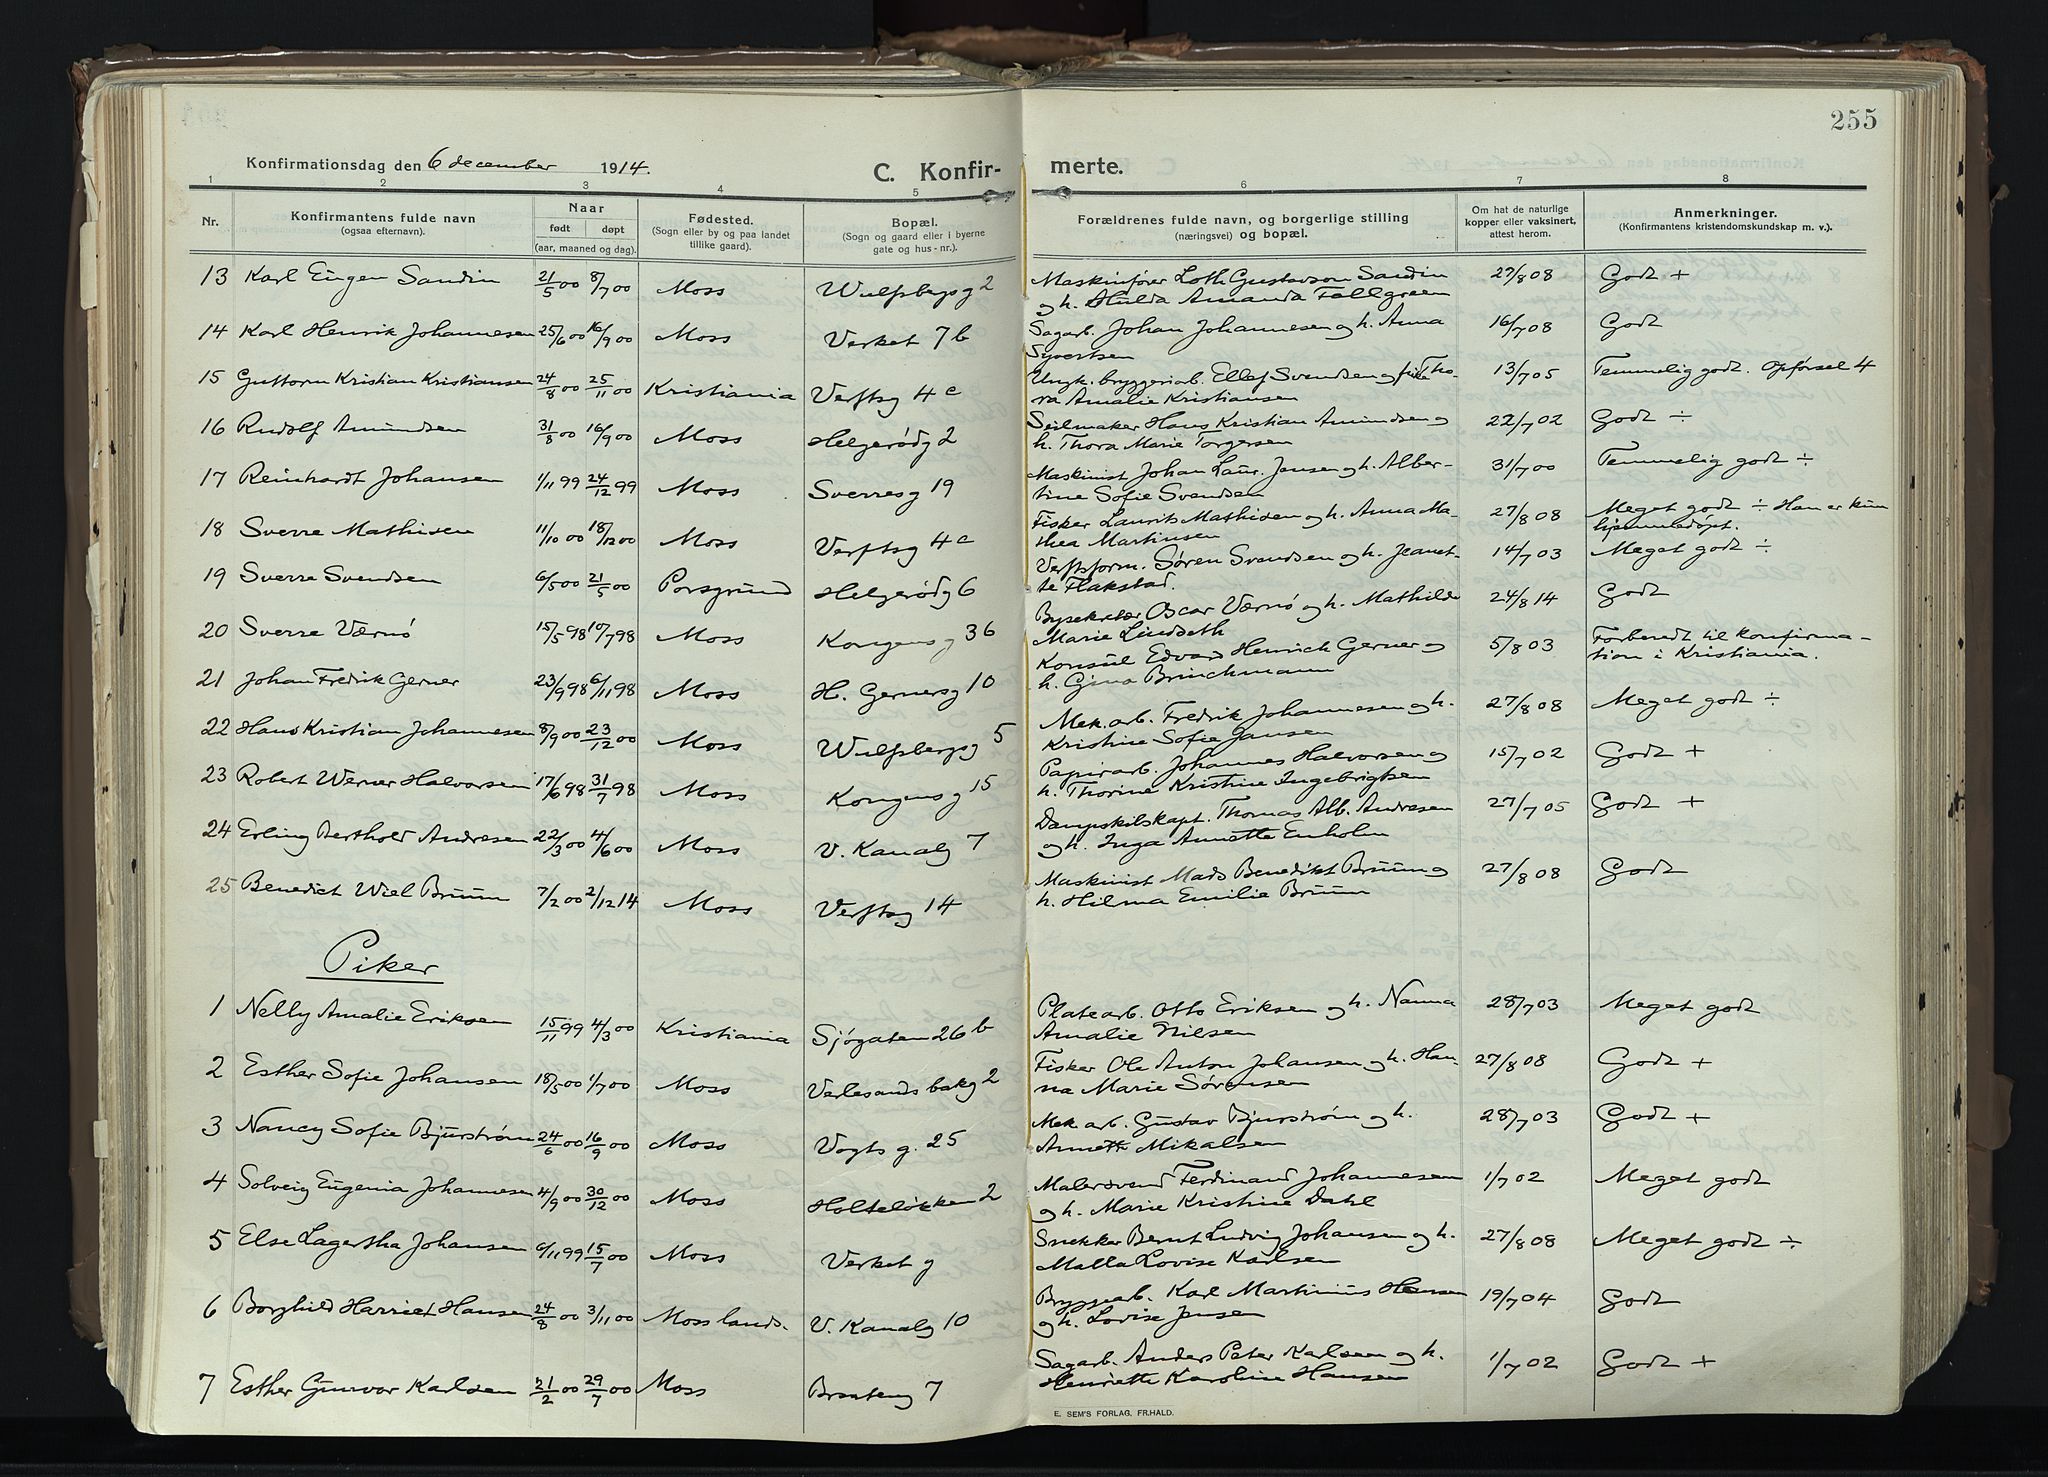 255
Konfirmationsdag den 6 december 1914.
C. Konfir-
merte.
1 2 3 4 5 6 7 8
Nr.
Konfirmantens fulde navn
(ogsaa efternavn).
Naar
født døpt
(aar, maaned og dag).
Fødested.
(Sogn eller by og paa landet
tillike gaard).
Bopæl.
(Sogn og gaard eller i byerne
gate og hus-nr.).
Forældrenes fulde navn, og borgerlige stilling
(næringsvei) og bopæl.
Om hat de naturlige
kopper eller vaksinert,
attest herom.
Anmerkninger.
(Konfirmantens kristendomskundskap m. v.).
13 Karl Eugen Sandin 21/5 00 8/7 00 Moss Wulfsbergs g 2 Maskinfører Loth Gustavson Sandin 27/8 08 Godt +
og h. Hulda Amanda Fallgreen
14 Karl Henrik Johannesen 25/6 00 16/9 00 Moss Verket 7 b Sagarb. Johan Johannesen og h. Anna 16/7 08 Godt
Syvertsen
15 Guttorm Kristian Kristiansen 24/8 00 25/11 00 Kristiania Verftsg 4 c Ungk. bryggeriarb. Ellef Svendsen og pike Tho- 13/7 05 Temmelig godt. Opførsel 4
ra Amalie Kristiansen
16 Rudolf Amundsen 31/8 00 16/9 00 Moss Helgerødg 2 Seilmaker Hans Kristian Amundsen og 22/7 02 Godt ÷
h. Thora Marie Torgersen
17 Reinhardt Johansen 1/11 99 24/12 99 Moss Sverresg 19 Maskinist Johan Laur. Jensen og h. Alber- 31/7 00 Temmelig godt ÷
tine Sofie Svendsen
18 Sverre Mathisen 11/10 00 18/12 00 Moss Verftsg 4 c Fisker Laurits Mathisen og h. Anna Ma- 27/8 08 Meget godt ÷ Han er kun
thea Martinsen hjemmedøpt.
19 Sverre Svendsen 6/5 00 21/5 00 Porsgrund Helgerødg 6 Verftsform. Søren Svendsen og h. Jeanet- 14/7 03 Meget godt ÷
te Flakstad.
20 Sverre Værnø 15/5 98 10/7 98 Moss Kongensg 36 Bysekretær Oscar Værnø og h. Mathilde 24/8 14 Godt
Marie Lindseth
21 Johan Fredrik Gerner 23/9 98 6/11 98 Moss H. Gernersg 10 Konsul Edvard Henrich Gerner og 5/8 03 Forberedt til konfirma-
h. Gjina Brinchmann tion i Kristiania.
22 Hans Kristian Johannesen 8/9 00 23/12 00 Moss Wulfsbergsg 5 Mek. arb. Fredrik Johannesen og h. 27/8 08 Meget godt ÷
Kristine Sofie Jansen
23 Robert Werner Halvorsen 17/6 98 31/7 98 Moss Kongensg 15 Papirarb. Johannes Halvorsen og 15/7 02 Godt +
h. Thorine Kristine Ingebrigtsen
24 Erling Berthold Andresen 22/3 00 4/6 00 Moss V. Kanalg 7 Dampskibskapt. Thomas Alb. Andresen 27/7 05 Godt +
og h. Inga Annette Enholm
25 Benedict Wiel Bruun 7/2 00 2/12 14 Moss Verftsg 14 Maskinist Mads Benedikt Bruun og 27/8 08 Godt
h. Hilma Emilie Bruun
Piker
1 Nelly Amalie Eriksen 15/11 99 4/3 00 Kristiania Sjøgaten 26 b Platearb. Otto Eriksen og h. Nanna 28/7 03 Meget godt
Amalie Nilsen
2 Esther Sofie Johansen 18/5 00 1/7 00 Moss Værlesands bakg 2 Fisker Ole Anton Johansen og h. Han- 27/8 08 Godt +
na Marie Sørensen
3 Nancy Sofie Bjurstrøm 24/6 00 16/9 00 Moss Vogts g. 25 Mek arb. Gustav Bjurstrøm og h. 28/7 03 Godt +
Annette Mikalsen
4 Solveig Eugenia Johannesen 4/9 00 30/12 00 Moss Holteløkken 2 Malersvend Ferdinand Johannesen 1/7 02 Meget godt
og h. Marie Kristine Dahl
5 Else Lagertha Johansen 6/11 99 15/7 00 Moss Verket g Snekker Bernt Ludvig Johansen og h. 27/8 08 Meget godt ÷
Malla Lovise Karlsen
6 Borghild Harriet Hansen 24/8 00 3/11 00 Moss lands. V. Kanalg 10 Bryggearb. Karl Martinius Hansen 19/7 04 Godt
og h. Lovise Jensen
7 Esther Gunvor Karlsen 21/2 00 29/7 00 Moss Brøteng 7 Sagarb. Anders Peter Karlsen og h. 1/7 02 Godt +
Henriette Karoline Hansen
E. SEM'S FORLAG, FR.HALD.